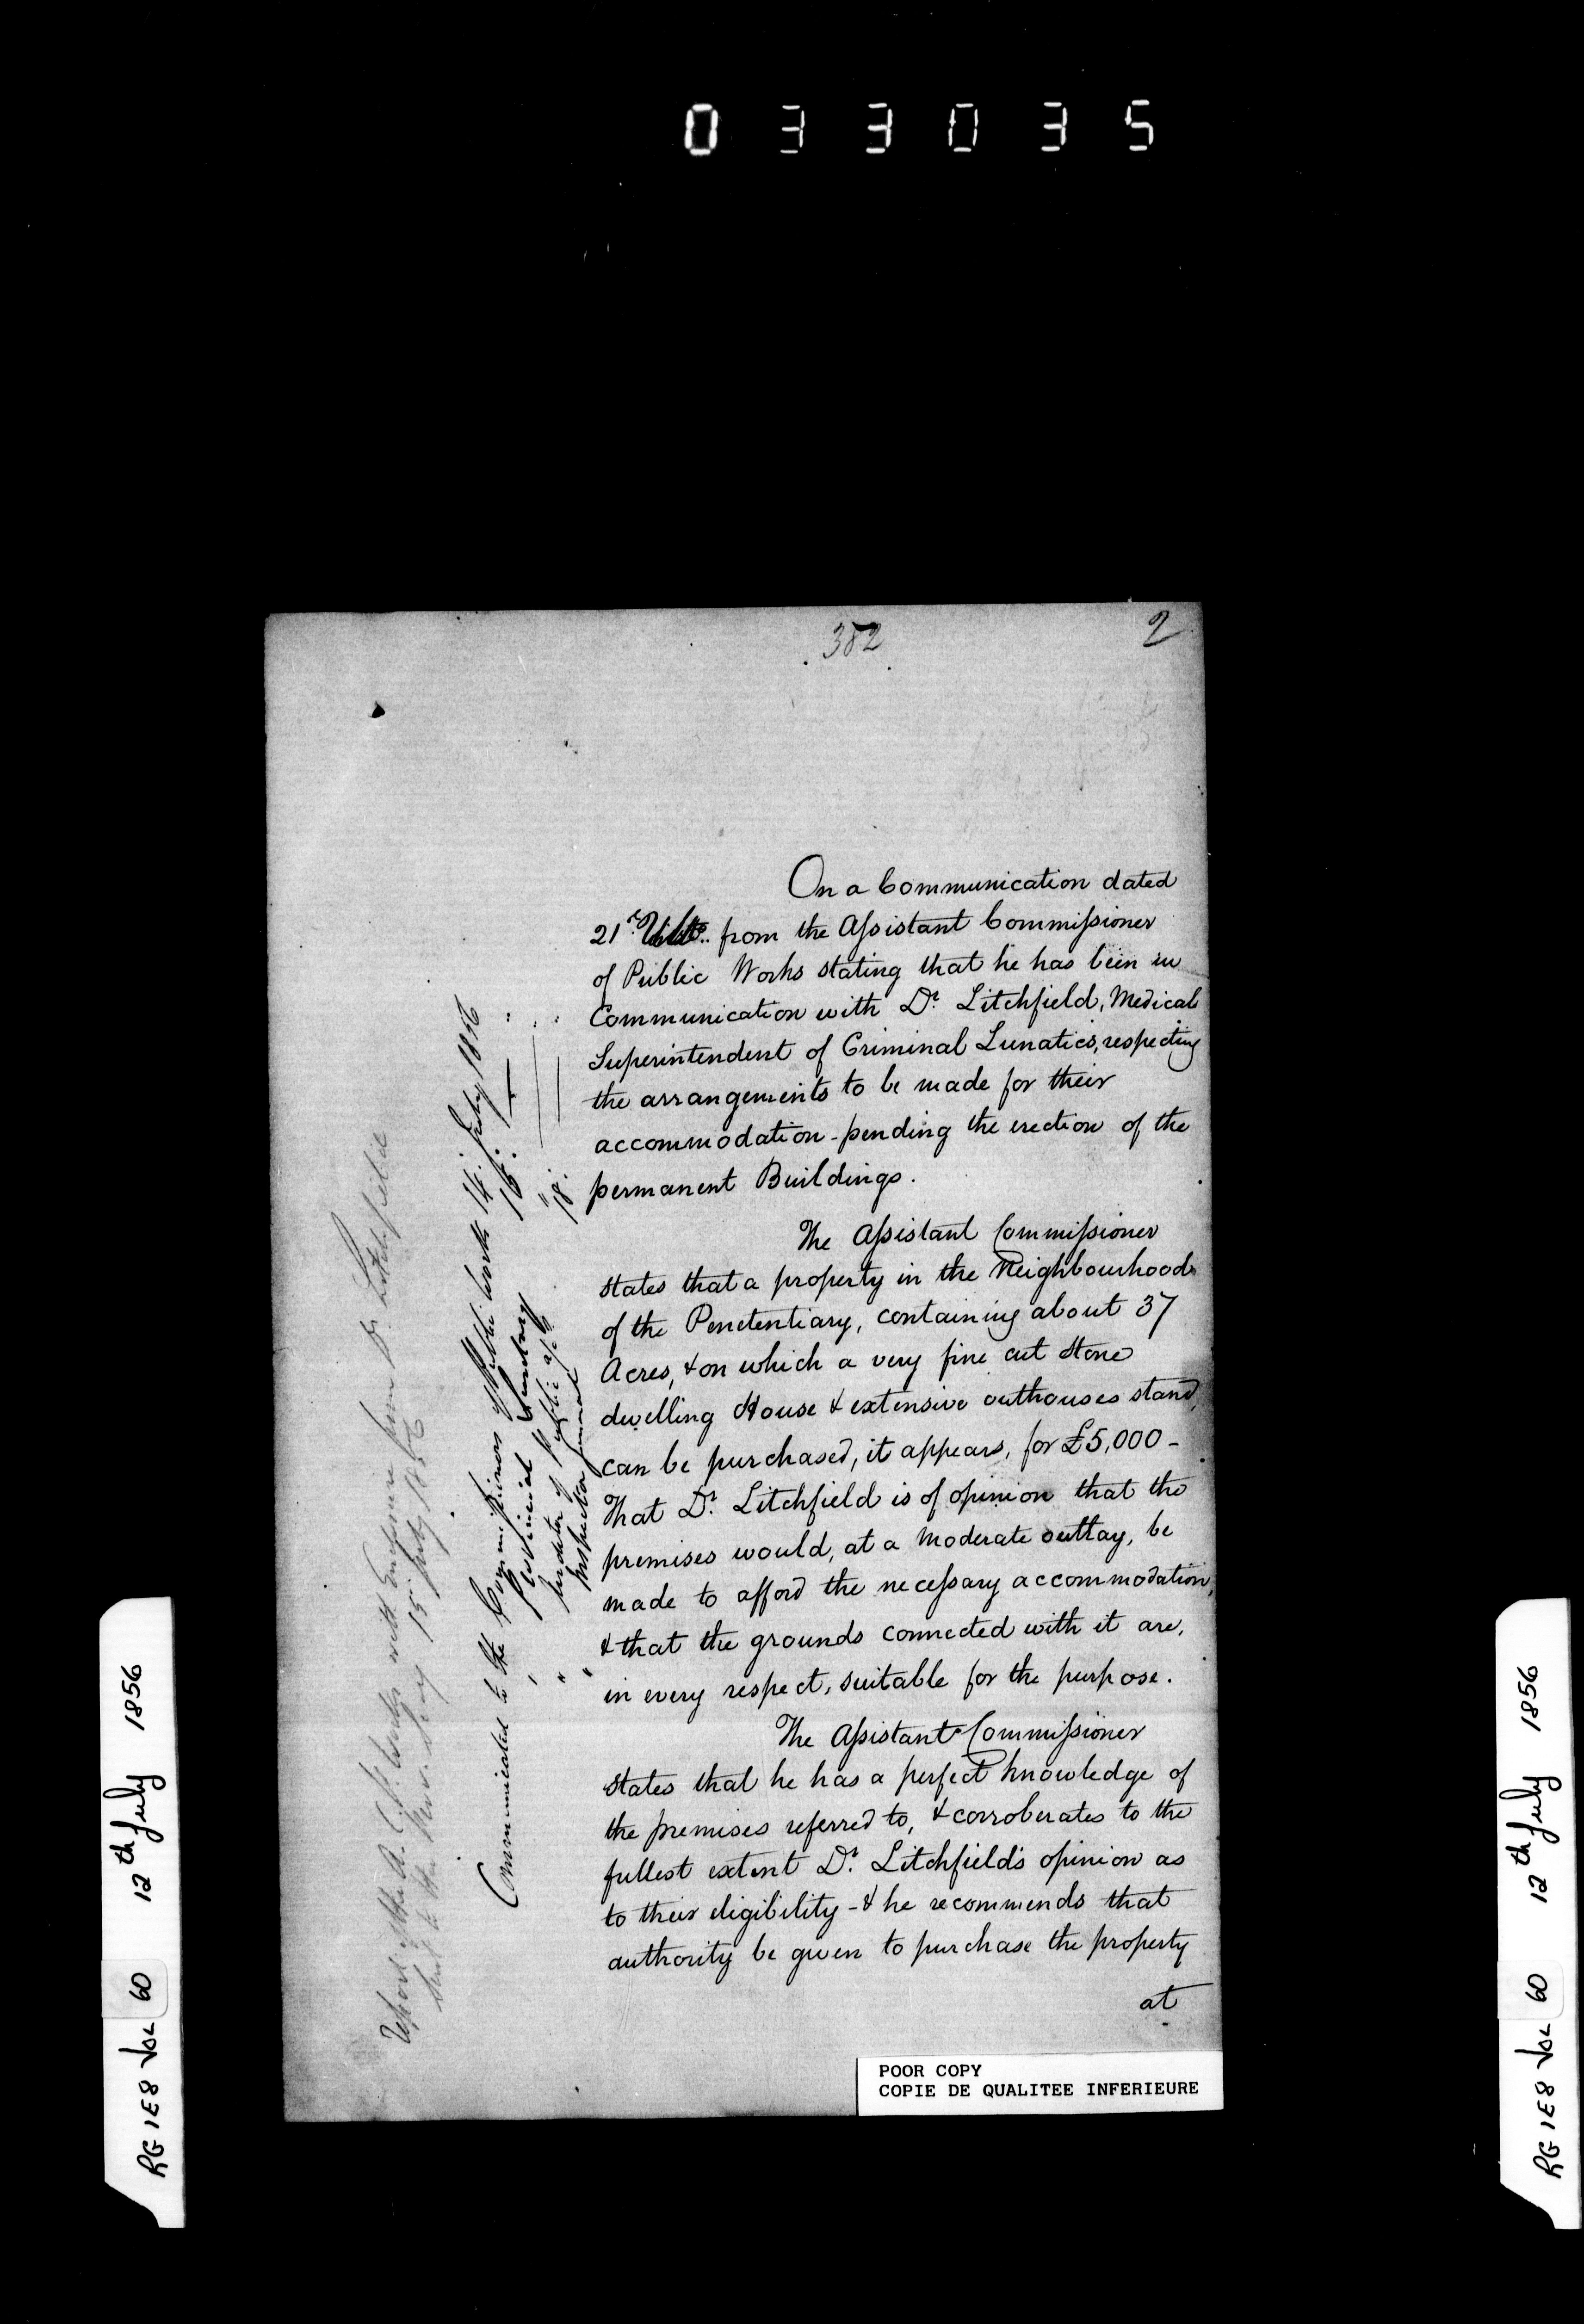 033035
382
2
On a Communication dated
21st Ulto. from the Assistant Commissioner
of Public Works stating that he has been in
Communication with Dr. Litchfield, Medical
Superintendent of Criminal Lunatics, respecting
the arrangements to be made for their
accommodation - pending the erection of the
permanent Buildings.
The Assistant Commissioner
states that a property in the Neighbourhood
of the Penetentiary, containing about 37
Acres, & on which a very fine cut stone
dwelling House & extensive outhouses stand,
can be purchased, it appears, for £5,000 -
That Dr. Litchfield is of opinion that the
premises would, at a moderate outlay, be
made to afford the necessary accommodation,
& that the grounds connected with it are,
in every respect, suitable for the purpose.
The Assistant Commissioner
states that he has a perfect knowledge of
the premises referred to, & corroberates to the
fullest extent Dr. Litchfield's opinion as
to their eligibility - & he recommends that
authority be given to purchase the property
at
Communicated to the Commissioners of Public Works 14. July 1856
" Provincial Secretary 16. " "
" Auditor of Public a/cts " "
" Inspector General 18. "
Report of the A. C. P. Works with Enclosure from Dr. Litchfield
Sent to the Prov. Secy 15. July 1856
POOR COPY
COPIE DE QUALITEE INFERIEURE
RG 1E8 VOL 60 12th July 1856
RG 1E8 VOL 60 12th July 1856